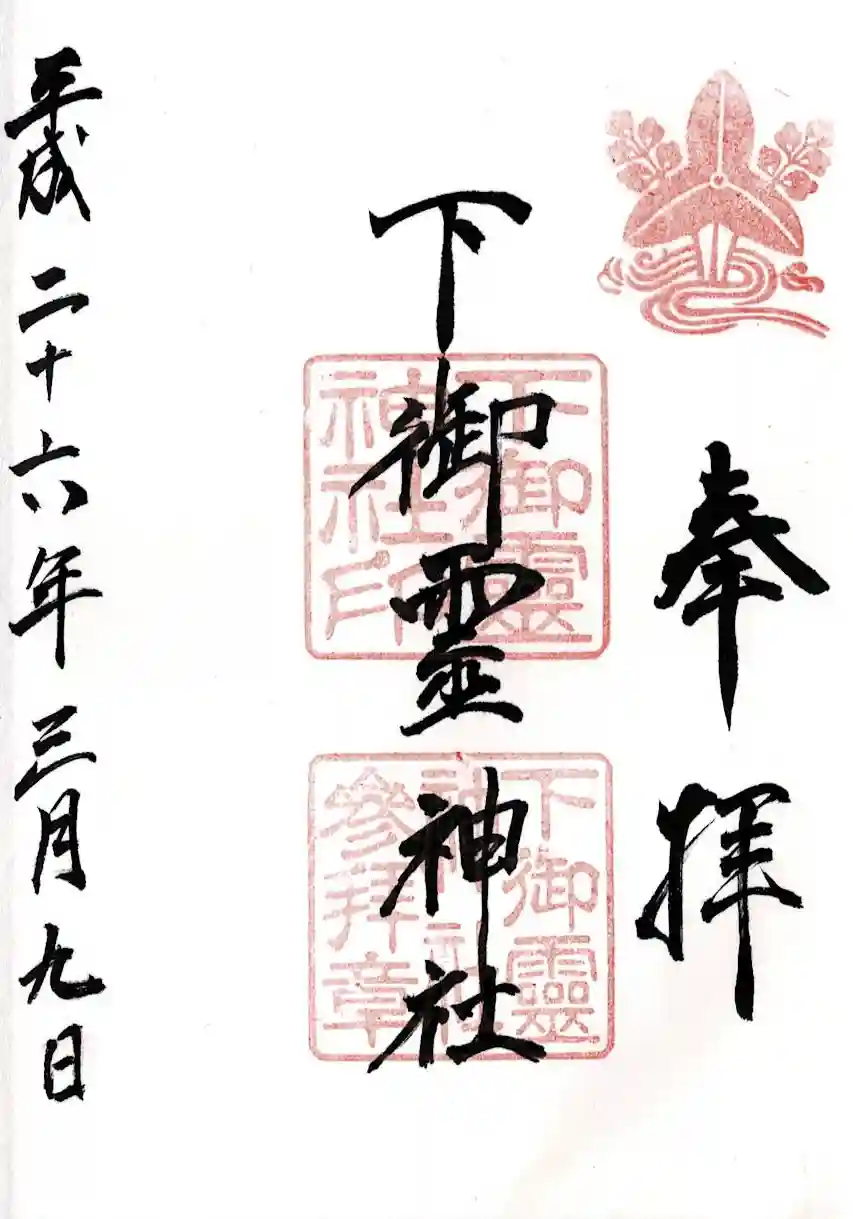 奉拝
下御霊神社
下御靈
神社印
下御靈
神社
參拜章
平成二十六年三月九日